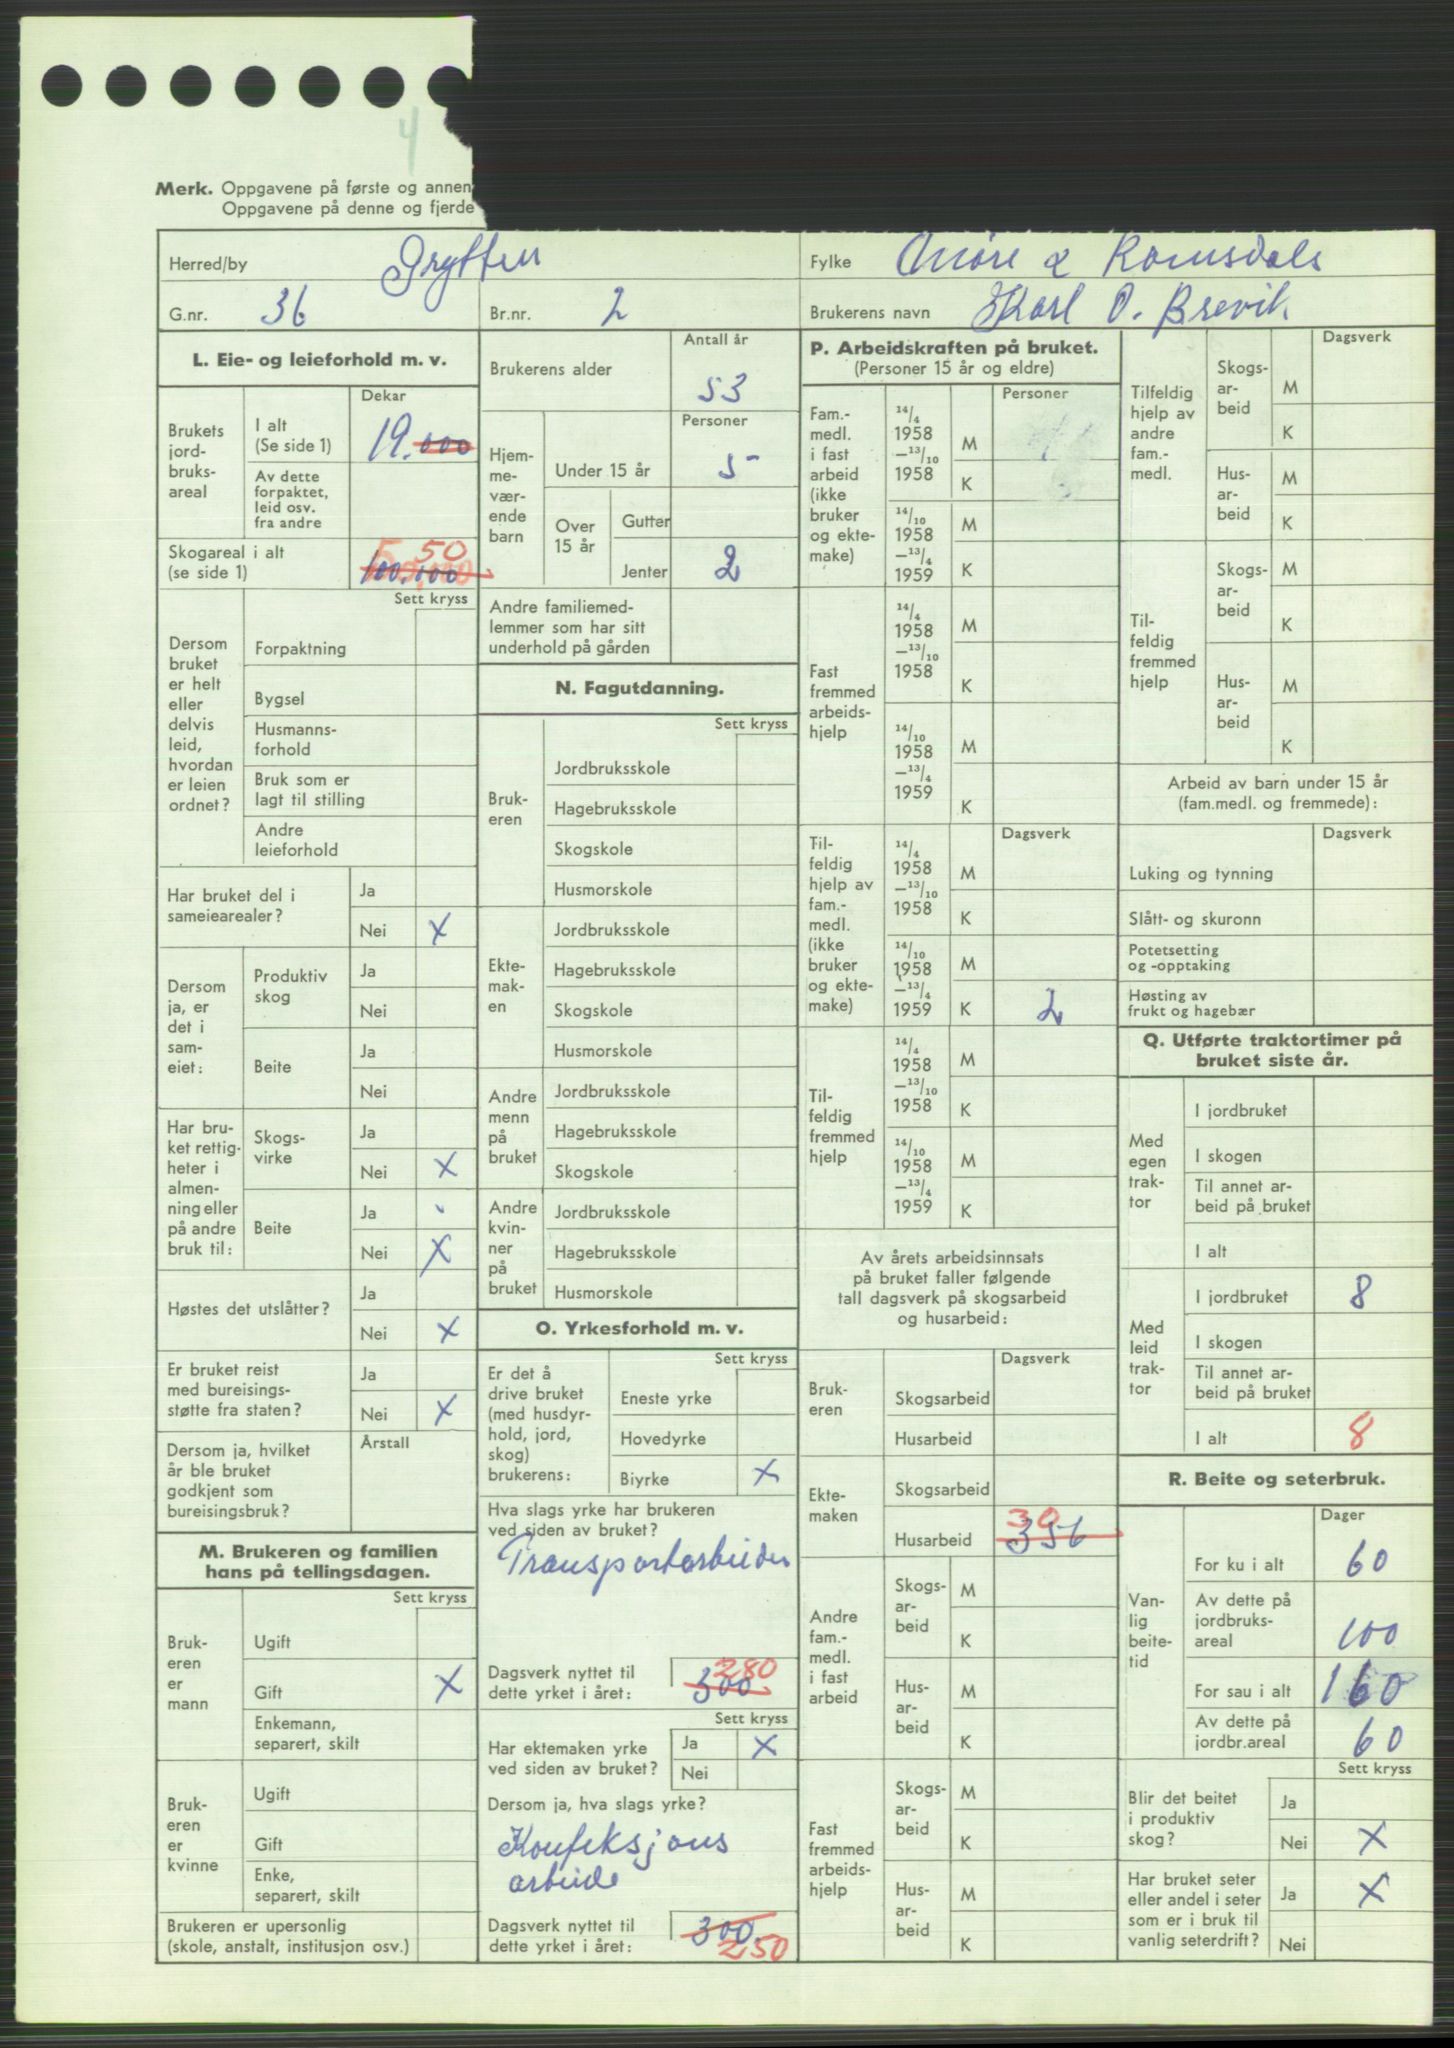 4
Merk. Oppgavene på første og annen
Oppgavene på denne og fjerde
Herred/by Grytten
Fylke Møre & Romsdals
G.nr. 36 Br.nr. 2
Brukerens navn Karl O. Brevik
L. Eie- og leieforhold m. v.
Dekar
Brukets jord-bruks-areal
I alt (Se side 1) 19.000
Av dette forpaktet, leid osv. fra andre
Skogareal i alt (se side 1) 100.000 50
Sett kryss
Dersom bruket er helt eller delvis leid, hvordan er leien ordnet?
Forpaktning
Bygsel
Husmanns-forhold
Bruk som er lagt til stilling
Andre leieforhold
Har bruket del i sameiearealer?
Ja
Nei X
Dersom ja, er det i sam-eiet:
Produktiv skog
Ja
Nei
Beite
Ja
Nei
Har bru-ket rettig-heter i almen-ning eller på andre bruk til:
Skogs-virke
Ja
Nei X
Beite
Ja
Nei X
Høstes det utslåtter?
Ja
Nei X
Er bruket reist med bureisings-støtte fra staten?
Ja
Nei X
Dersom ja, hvilket år ble bruket godkjent som bureisingsbruk?
Årstall
M. Brukeren og familien hans på tellingsdagen.
Sett kryss
Bruk-eren er mann
Ugift
Gift X
Enkemann, separert, skilt
Bruk-eren er kvinne
Ugift
Gift
Enke, separert, skilt
Brukeren er upersonlig (skole, anstalt, institusjon osv.)
Antall år
Brukerens alder 53
Personer
Hjem-me-vær-ende barn
Under 15 år 5
Over 15 år
Gutter
Jenter 2
Andre familiemed-lemmer som har sitt underhold på gården
N. Fagutdanning.
Sett kryss
Bruk-eren
Jordbruksskole
Hagebruksskole
Skogskole
Husmorskole
Ekte-mak-en
Jordbruksskole
Hagebruksskole
Skogskole
Husmorskole
Andre menn på bruket
Jordbruksskole
Hagebruksskole
Skogskole
Andre kvin-ner på bruket
Jordbruksskole
Hagebruksskole
Husmorskole
O. Yrkesforhold m. v.
Sett kryss
Er det å drive bruket (med husdyr-hold, jord, skog) brukerens:
Eneste yrke
Hovedyrke
Biyrke X
Hva slags yrke har brukeren ved siden av bruket?
Transportarbeider
Dagsverk nyttet til dette yrket i året: 300 280
Sett kryss
Har ektemaken yrke ved siden av bruket?
Ja X
Nei
Dersom ja, hva slags yrke?
Konfeksjons
arbeide
Dagsverk nyttet til dette yrket i året: 300. 250
P. Arbeidskraften på bruket.
(Personer 15 år og eldre)
Personer
Fam.-medl. i fast arbeid (ikke bruker og ekte-make)
14/4 1958 —13/10 1958
M
K
14/10 1958 —13/4 1959
M
K
Fast fremmed arbeids-hjelp
14/4 1958 —13/10 1958
M
K
14/10 1958 —13/4 1959
M
K
Dagsverk
Til-feldig hjelp av fam.-medl. (ikke bruker og ekte-make)
14/4 1958 —13/10 1958
M
K
14/10 1958 —13/4 1959
M
K 2
Til-feldig fremmed hjelp
14/4 1958 —13/10 1958
M
K
14/10 1958 —13/4 1959
M
K
Av årets arbeidsinnsats på bruket faller følgende tall dagsverk på skogsarbeid og husarbeid:
Dagsverk
Bruk-eren
Skogsarbeid
Husarbeid
Ekte-maken
Skogsarbeid
Husarbeid 356 30
Andre fam.-medl. i fast arbeid
Skogs-ar-beid
M
K
Hus-ar-beid
M
K
Fast fremmed arbeids-hjelp
Skogs-ar-beid
M
K
Hus-ar-beid
M
K
Dagsverk
Tilfeldig hjelp av andre fam.-medl.
Skogs-ar-beid
M
K
Hus-ar-beid
M
K
Til-feldig fremmed hjelp
Skogs-ar-beid
M
K
Hus-ar-beid
M
K
Arbeid av barn under 15 år (fam.medl. og fremmede):
Dagsverk
Luking og tynning
Slått- og skuronn
Potetsetting og -opptaking
Høsting av frukt og hagebær
Q. Utførte traktortimer på bruket siste år.
Med egen trak-tor
I jordbruket
I skogen
Til annet ar-beid på bruket
I alt
Med leid trak-tor
I jordbruket 8
I skogen
Til annet ar-beid på bruket
I alt 8
R. Beite og seterbruk.
Dager
Van-lig beite-tid
For ku i alt 60
Av dette på jordbruks-areal 100
For sau i alt 160
Av dette på jordbr.areal 60
Sett kryss
Blir det beitet i produktiv skog?
Ja
Nei X
Har bruket seter eller andel i seter som er i bruk til vanlig seterdrift?
Ja X
Nei